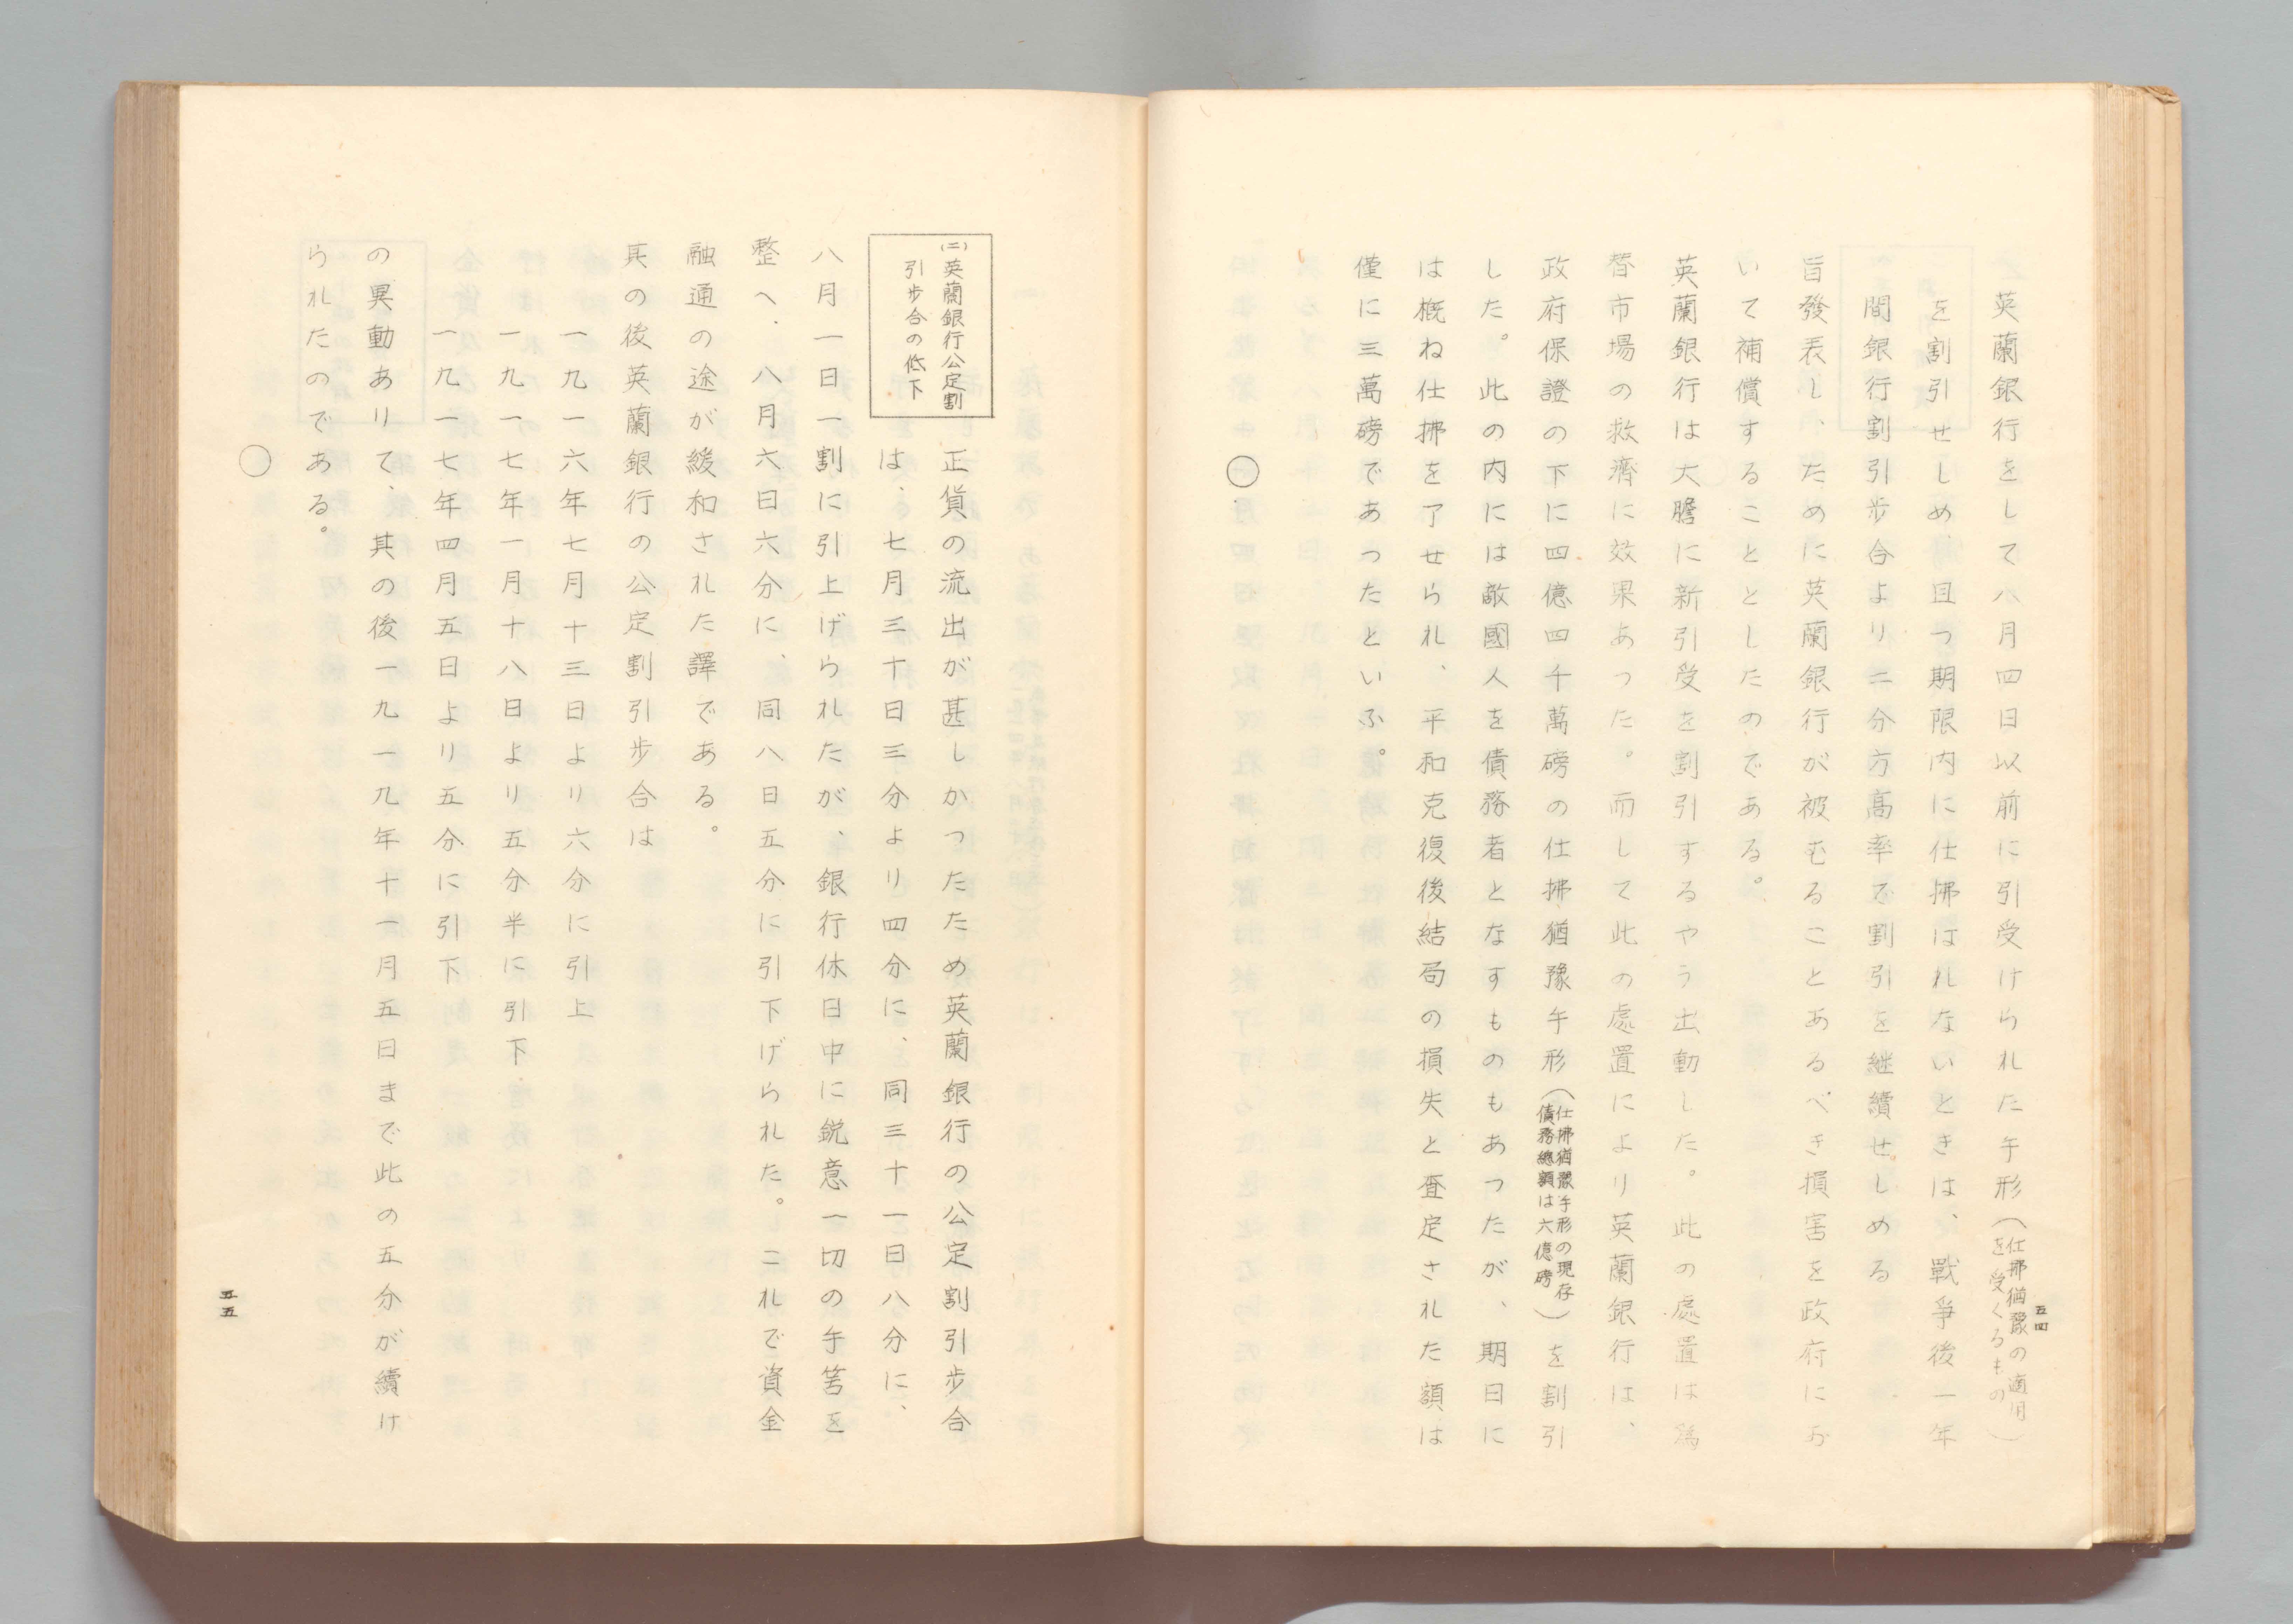 英蘭銀行をして八月四日以前に引受けられた手形（仕拂猶豫の適用を受くるもの）
を割引せしめ、且つ期限内に仕拂はれないときは、戰爭後一年
間銀行割引歩合より二分方高率で割引を継續せしめる
旨發表し、ために英蘭銀行が被むることあるべき損害を政府にお
いて補償することとしたのである。
英蘭銀行は大膽に新引受を割引するやう出動した。此の處置は爲
替市場の救濟に效果あつた。而して此の處置により英蘭銀行は、
政府保證の下に四億四千萬磅の仕拂猶豫手形（仕拂猶豫手形の現存債務總額は六億磅）を割引
した。此の内には敵國人を債務者となすものもあつたが、期日に
は概ね仕拂を了せられ、平和克復後結局の損失と査定された額は
僅に三萬磅であつたといふ。
〇
五四
(二)英蘭銀行公定割
引歩合の低下
正貨の流出が甚しかつたため英蘭銀行の公定割引歩合
は、七月三十日三分より四分に、同三十一日八分に、
八月一日一割に引上げられたが、銀行休日中に鋭意一切の手筈を
整へ、八月六日六分に、同八日五分に引下げられた。これで資金
融通の途が緩和された譯である。
其の後英蘭銀行の公定割引歩合は
一九一六年七月十三日より六分に引上
一九一七年一月十八日より五分半に引下
一九一七年四月五日より五分に引下
の異動ありて、其の後一九一九年十一月五日まで此の五分が續け
られたのである。
〇
五五